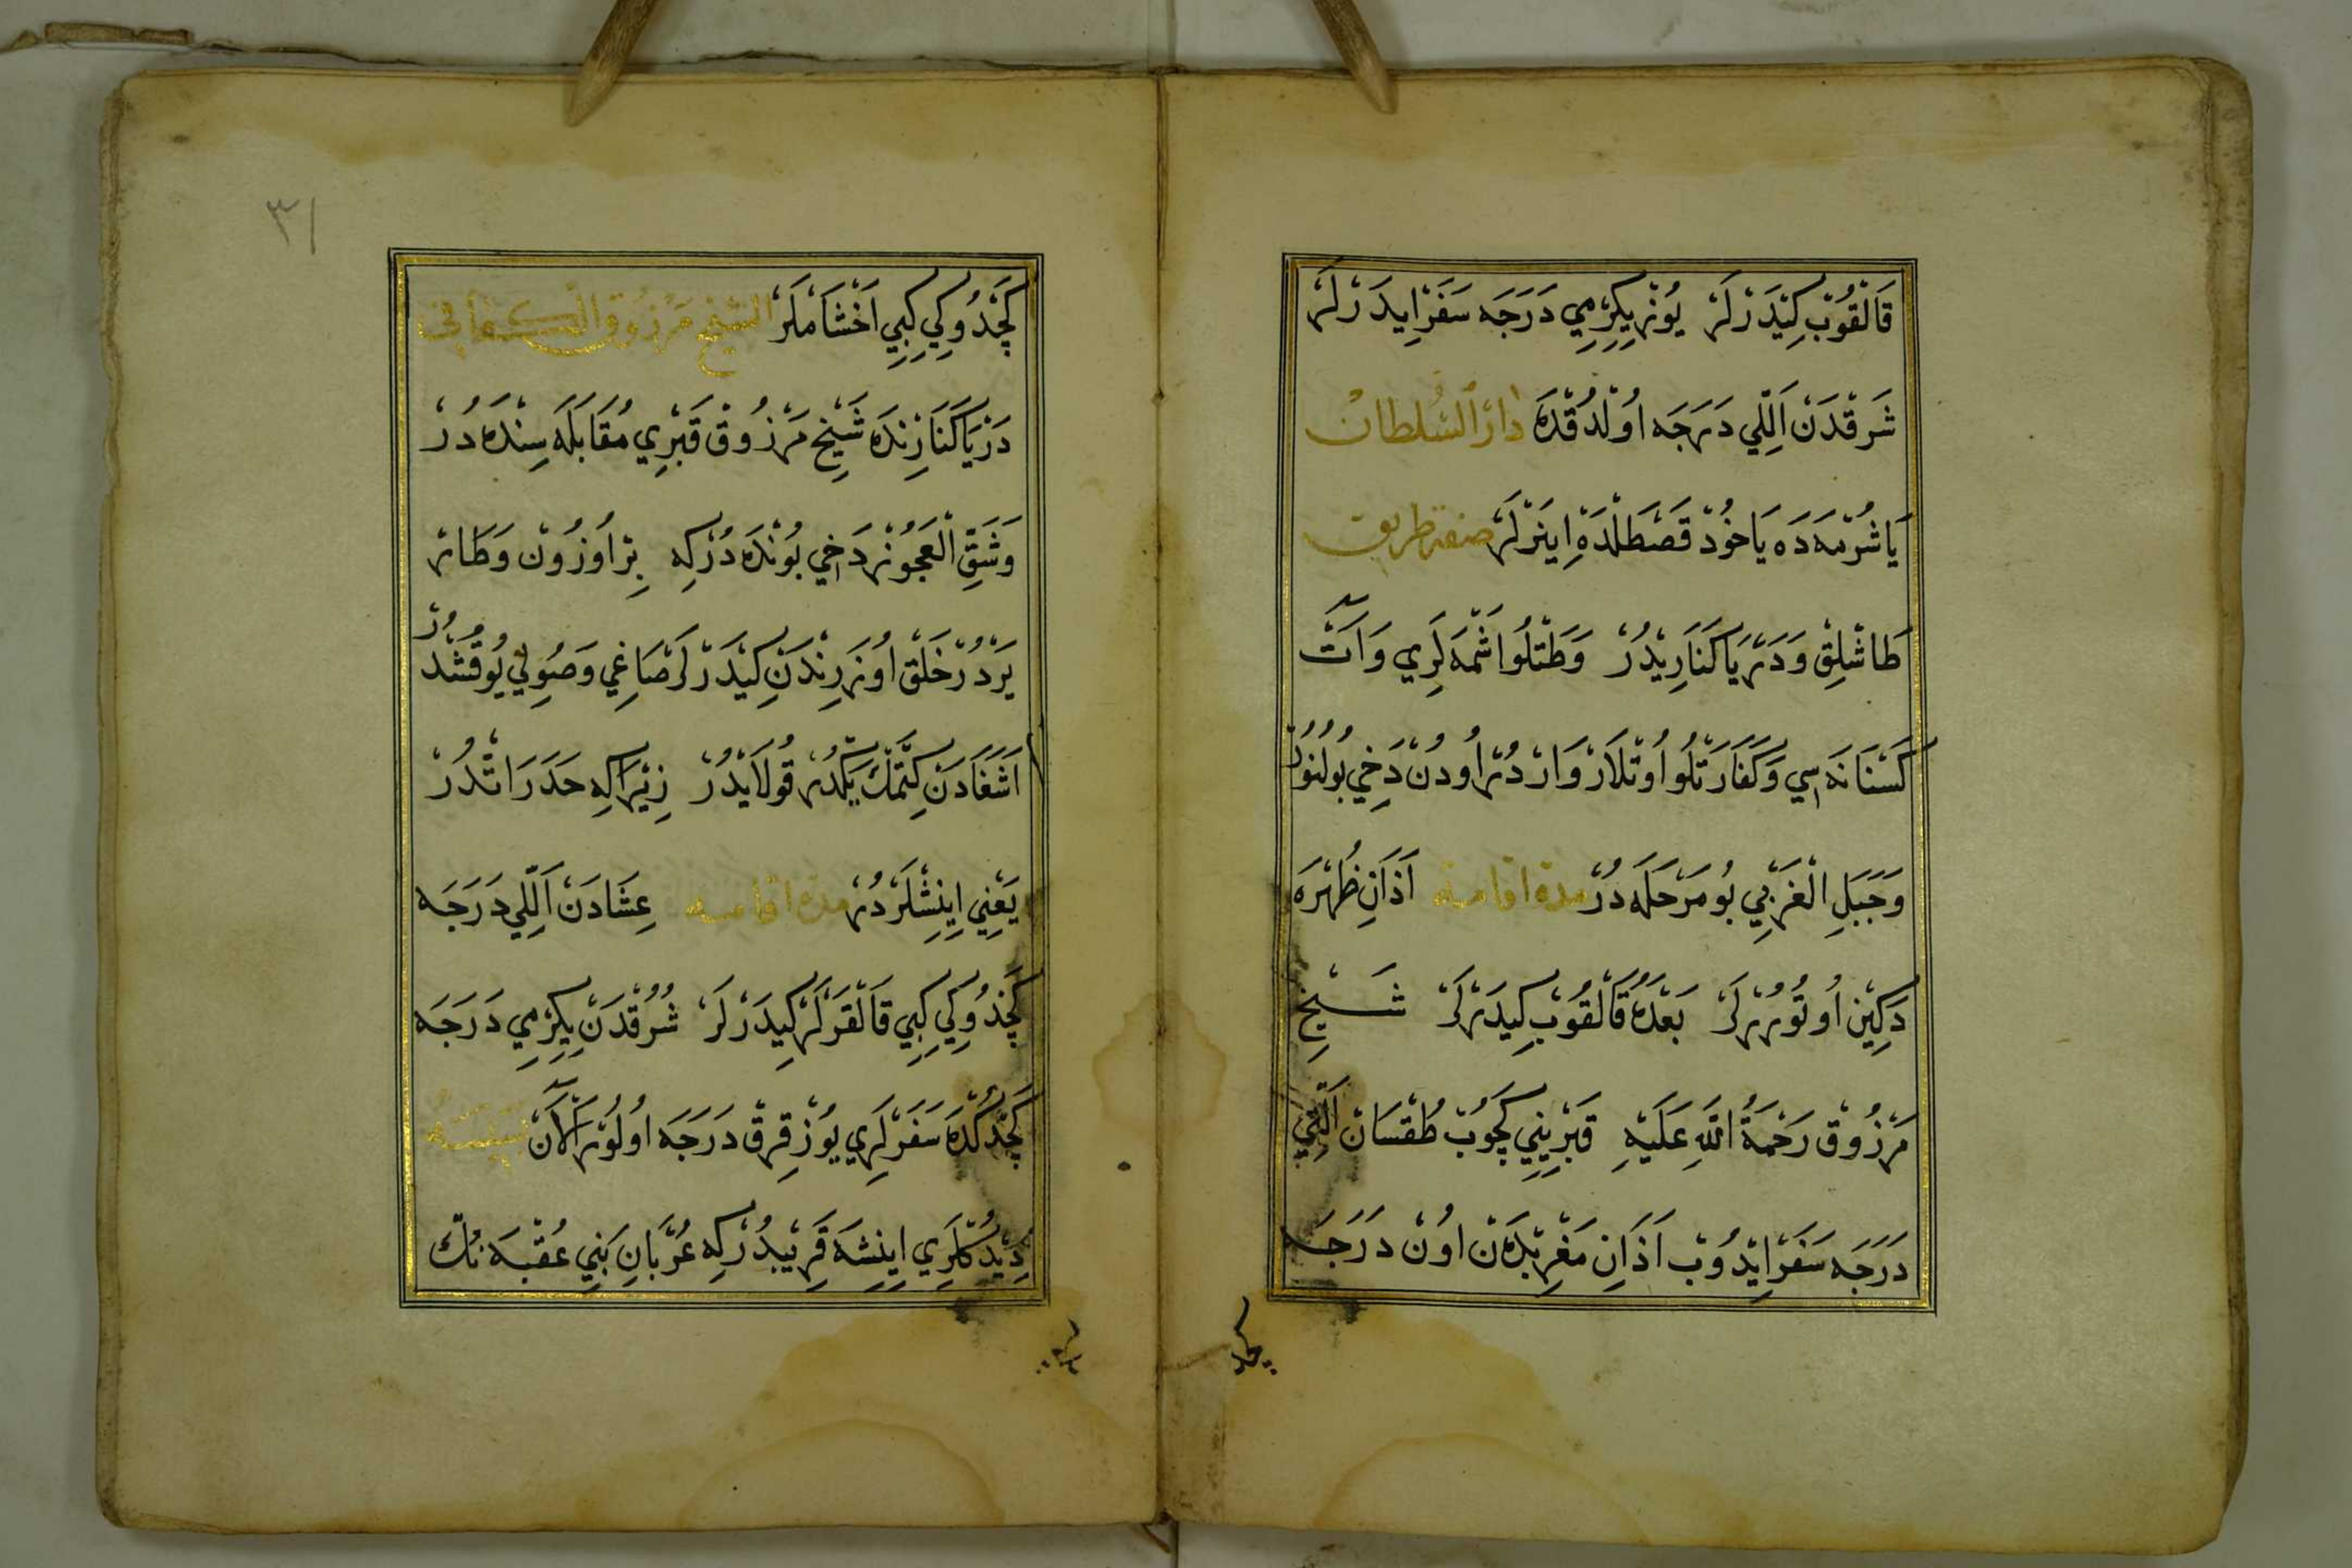 قَالْقُوبْ كِيدَرْلَرْ يُوزْ يِكِرْمِي دَرَجَه سَفَرْ اِيدَرْلَرْ
شَرقْدَنْ اَللِّي دَرَجَه اُولْدُقْدَهْ دَارُ السُّلْطَانْ
يَاشُرْمَه دَه يَاخُودْ قَصْطَلْدَهْ اِينَرْلَرْ صفة طريق
طَاشْلِقْ وَدَرْيَا كَنَارِيدُرْ وَطَتْلُو اشْمَه لَرِي وَآتْ
كَسْتَنَانَه سِي وَكَفَارَتْلُو اُوتْلَارْ وَارْدُرْ اُودُنْ دَخِي بُولُنُورْ
وَجَبَلِ الْغَرْبِي بُو مَرْحَلَه دُرْ مدة اقامته اَذَانِ ظُهْرَه
دَكِينْ اُوتُورُرْلَرْ بَعْدَهُ قَالْقُوبْ كِيدَرْلَرْ شَيْخ
مَرْزُوقْ رَحْمَةُ اللّٰهِ عَلَيْهِ قَبْرِينِي كَچُوبْ طُقْسَانْ اَلْتِي
دَرَجَه سَفَرْ اِيدُوبْ اَذَانِ مَغْرِبْدَنْ اُونْ دَرَجَه
كچد
٣١
كَچْدُوكِي كِبِي اَخْشَامْلَرْ الشيخ مَرْزُوق الكفافي
دَرْيَا كَنَارِنْدَه شَيْخ مَرْزُوقْ قَبْرِي مُقَابَلَه سِنْدَه دُرْ
وَشَقِّ الْعَجُوزْ دَخِي بُونْدَه دُرْكِه بِرْ اُوزُونْ وَطَارْ
يَرْدُرْ خَلْقْ اُوزَرِنْدَنْ كِيدَرْلَرْ صَاغِي وَصُولِي يُوقُشْدُرْ
اَشَغَادَنْ كِتْمَكْ يَكْدُرْ قُولَايْدُرْ زِيْرَاكِه حَدَرَاتْدُرْ
يَعْنِي اِينِشْلَرْدُرْ مدة اقامته عِشَادَنْ اَللِّي دَرَجَه
كَچْدُوكِي كِبِي قَالْقَرْلَرْ كِيدَرْلَرْ شُرُقْدَنْ يِكِرْمِي دَرَجَه
كَچْدُكْدَه سَفَرْلَرِي يُوزْ قِرقْ دَرَجَه اُولُورْ اَلْآنْ
دِيدُكْلَرِي اِينِشَه قَرِيبْدُرْكِه عُرْبَانِ بَنِي عُقْبَه نُكْ